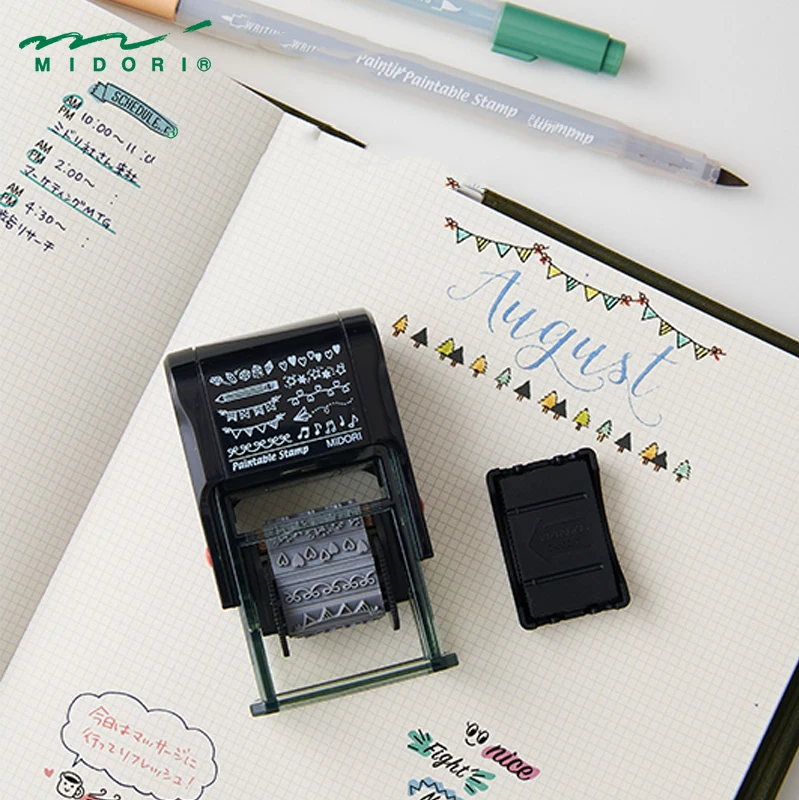 MIDORI®
WRITING
Paintable Stamp
SCHEDULE
AM
PM 10:00~11:00
ミドリ社さん来社
AM
PM 2:00~ :
マーケティングMTG
AM
PM 4:30~ :
リサーチ
August
MIDORI
Paintable Stamp
今日はマッサージに
行ってリフレッシュ!
nice
Fight